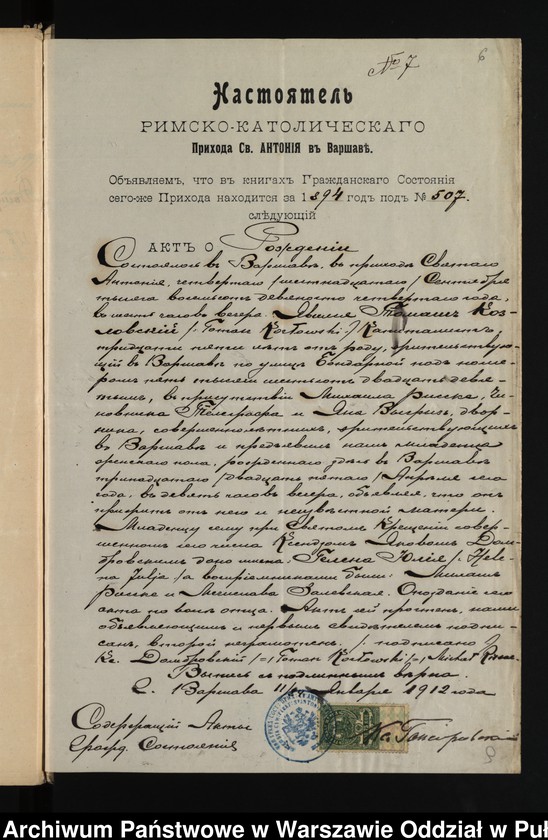 № 7
6
Настоятель
РИМСКО-КАТОЛИЧЕСКАГО
Прихода Св. АНТОНІЯ въ Варшавѣ.
Объявляемъ, что въ книгахъ Гражданскаго Состоянія
сего-же Прихода находится за 1894 годъ подъ № 507.
слѣдующій
АКТЪ О Рожденіи
Состоялось въ Варшавѣ, въ приходѣ Святаго
Антонія, четвертаго /шестнадцатаго/ Сентября
тысяча восемьсотъ девяносто четвертаго года,
въ шесть часовъ вечера. Явился Томашъ Коз-
ловскій /: Toman Kozłowski :/ Капиталистъ,
тридцати пяти лѣтъ отъ роду, жительствую-
щій въ Варшавѣ по улицѣ Бондарной подъ номе-
ромъ пять тысячъ шестьсотъ двадцать девя-
тымъ, въ присутствіи Михаила Риске, Чи-
новника Телеграфа и Яна двор-
ника, совершеннолѣтнихъ, жительствующихъ
въ Варшавѣ и предъявилъ намъ младенца
женскаго пола, рожденнаго здѣсь въ Варшавѣ
тринадцатаго /двадцать пятаго/ Апрѣля сего
года, въ девять часовъ вечера, объявляя, что онъ
прижитъ отъ него и неизвѣстной матери.
Младенцу сему при Святомъ Крещеніи совер-
шенномъ сего числа Ксендзомъ Яковомъ Дом-
бровскимъ дано имена: Гелена Юлія /: Hele-
na Julja :/ а воспріемниками были: Михаилъ
Риске и Залевская. Опозданіе сего
акта по волѣ отца. Актъ сей прочтенъ, нами
объявляющимъ и первымъ свидѣтелемъ подпи-
санъ, второй неграмотенъ. / подписано /
Кс. Домбровскій /–/ Toman Kozłowski /–/ Michał Riske.
Выпись съ подлиннымъ вѣрна.
г. Варшава 11/ Января 1912 года
Содержащій Акты
Гражд. Состоянія
Кс.
Archiwum Państwowe w Warszawie Oddział w Puł